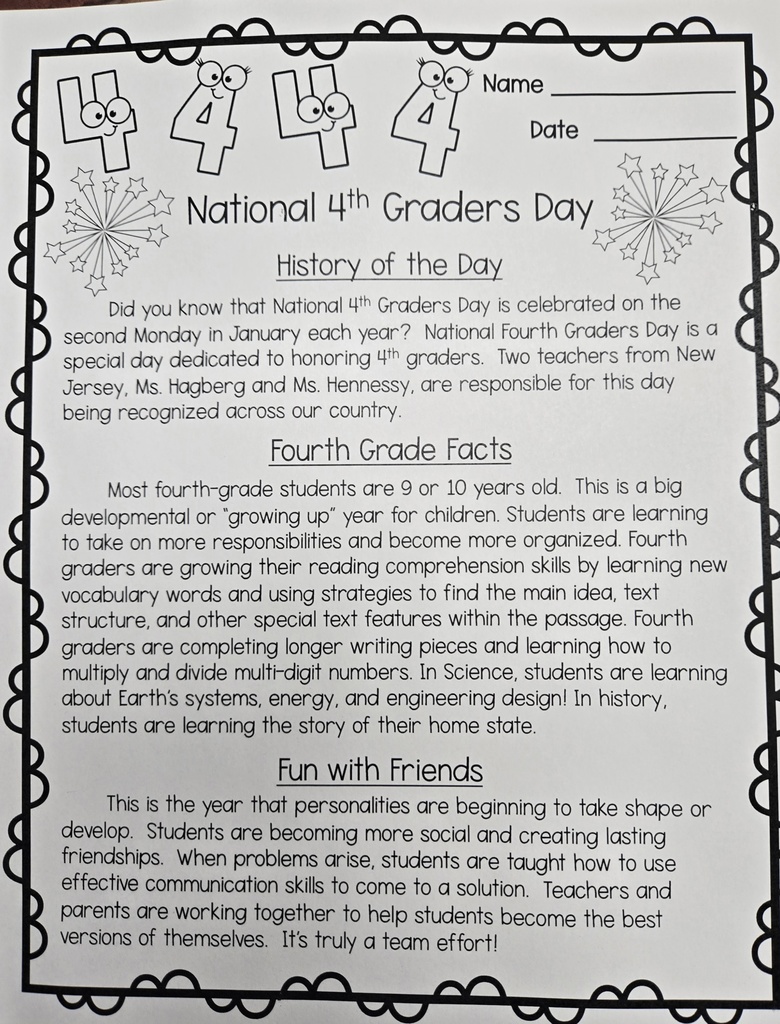 4 4 4 4
Name
Date
National 4th Graders Day
History of the Day
Did you know that National 4th Graders Day is celebrated on the
second Monday in January each year? National Fourth Graders Day is a
special day dedicated to honoring 4th graders. Two teachers from New
Jersey, Ms. Hagberg and Ms. Hennessy, are responsible for this day
being recognized across our country.
Fourth Grade Facts
Most fourth-grade students are 9 or 10 years old. This is a big
developmental or "growing up" year for children. Students are learning
to take on more responsibilities and become more organized. Fourth
graders are growing their reading comprehension skills by learning new
vocabulary words and using strategies to find the main idea, text
structure, and other special text features within the passage. Fourth
graders are completing longer writing pieces and learning how to
multiply and divide multi-digit numbers. In Science, students are learning
about Earth's systems, energy, and engineering design! In history,
students are learning the story of their home state.
Fun with Friends
This is the year that personalities are beginning to take shape or
develop. Students are becoming more social and creating lasting
friendships. When problems arise, students are taught how to use
effective communication skills to come to a solution. Teachers and
parents are working together to help students become the best
versions of themselves. It's truly a team effort!